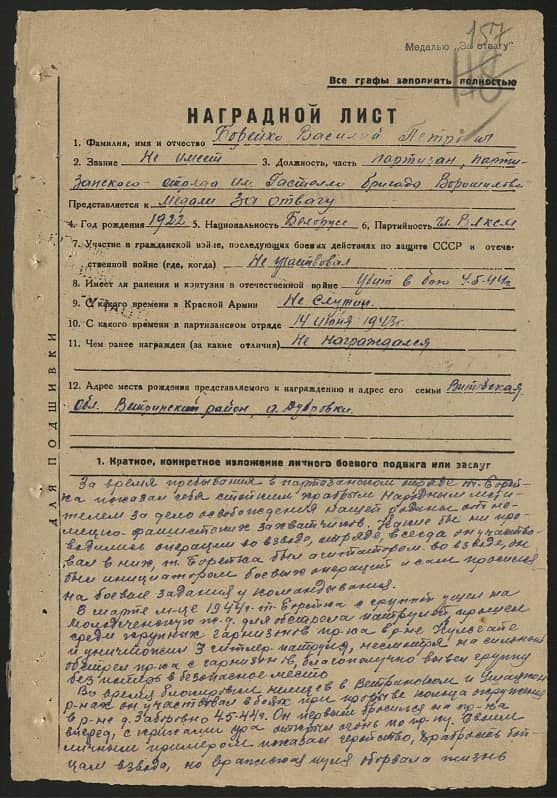 157
Медалью "За отвагу"
118
Все графы заполнять полностью
НАГРАДНОЙ ЛИСТ
1. Фамилия, имя и отчество Борейко Василий Петрович
2. Звание Не имеет 3. Должность, часть партизан, парти-
занского отряда им. Гастелло бригада Ворошилова
Представляется к медали За отвагу
4. Год рождения 1922 5. Национальность Белорусс 6. Партийность чл. ВЛКСМ
7. Участие в гражданской войне, последующих боевых действиях по защите СССР и отече-
ственной войне (где, когда) Не участвовал
8. Имеет ли ранения и контузии в отечественной войне Убит в бою 4.5.44г
9. С какого времени в Красной Армии Не служил
10. С какого времени в партизанском отряде 14 июня 1943г.
11. Чем ранее награжден (за какие отличия) Не награждался
12. Адрес места рождения представляемого к награждению и адрес его семьи Витебская
Обл. Ветринский район, д. Дубровки.
ДЛЯ ПОДШИВКИ
1. Краткое, конкретное изложение личного боевого подвига или заслуг
За время пребывания в партизанском отряде т. Борей-
ка показал себя стойким храбрым народным мсти-
телем за дело освобождения нашей родины от не-
мецко-фашистских захватчиков. Какие бы ни про-
водились операции во взводе, отряде, всегда он участво-
вал в них, т. Борейка был агитатором во взводе, он
был инициатором боевых операций и сам просился
на боевые задания у командывания.
В марте м-це 1944г. т. Борейка с группой ушел на
Молодеченскую ж.д. для обстрела патрулей прошел
среди крупных гарнизонов пр-ка в р-не
и уничтожил 3 гитлер. патруля, несмотря на сильный
обстрел пр-ка с гарнизонов, благополучно вывел группу
без потерь в безопасное место
Во время блокировки немцев в Ветринском и Ушацком
р-нах он участвовал в боях при прорыве кольца окружения
в р-не д. Заборовно 4.5.44г. Он первый бросился на пр-ка
вперед, с криками ура открыл огонь по пр-ку. Своим
личным примером показал геройство, храбрость бой-
цам взвода, но вражеская пуля оборвала жизнь